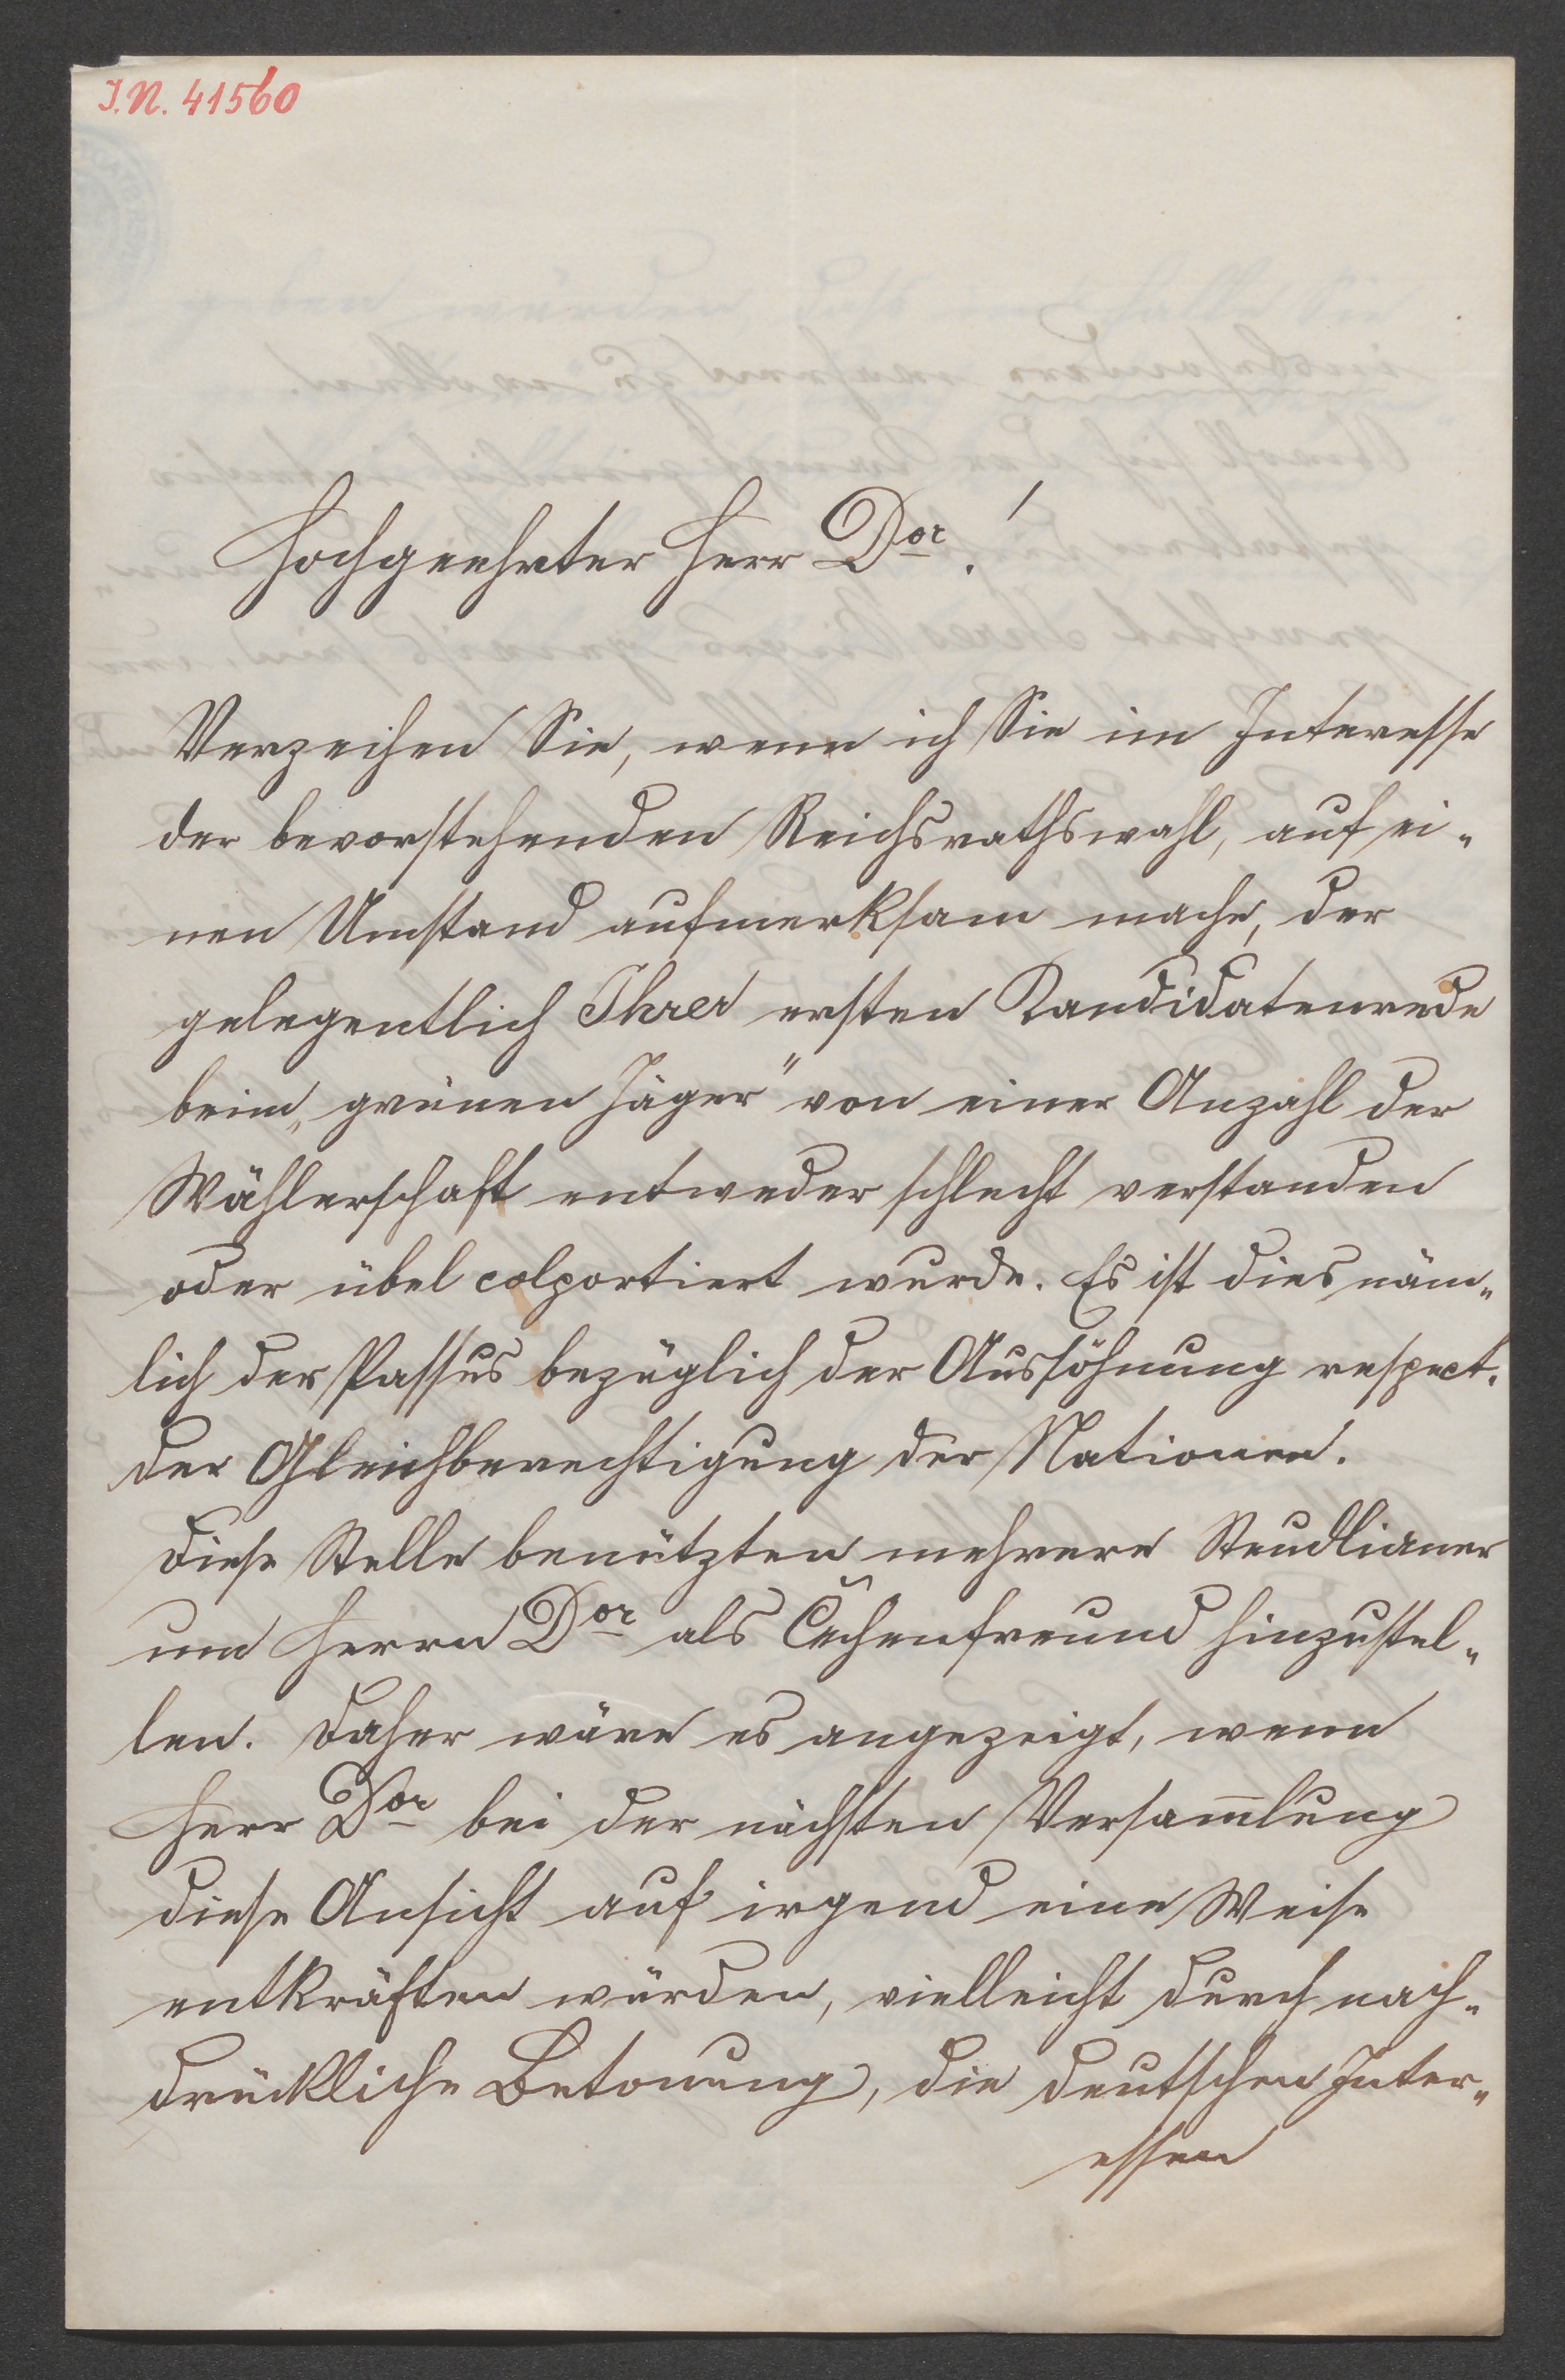 I.N. 41560
Hochgeehrter Herr Dor.!
Verzeihen Sie, wenn ich Sie im Interesse
der bevorstehenden Reichsrathswahl, auf ei-
nen Umstand aufmerksam mache, der
gelegentlich Ihrer ersten Kandidatenrede
beim „grünen Jäger" von einer Anzahl der
Wählerschaft entweder schlecht verstanden
oder übel colportiert wurde. Es ist dies näm-
lich der Passus bezüglich der Aussöhnung respect.
der Gleichberechtigung der Nationen.
Diese Stelle benützten mehrere Steudlianer
um Herrn Dor als Čechenfreund hinzustel-
len. Daher wäre es angezeigt, wenn
Herr Dor bei der nächsten Versam̅lung
diese Ansicht auf irgend eine Weise
entkräften würden, vielleicht durch nach-
drückliche Betonung, die deutschen Inter-
essen